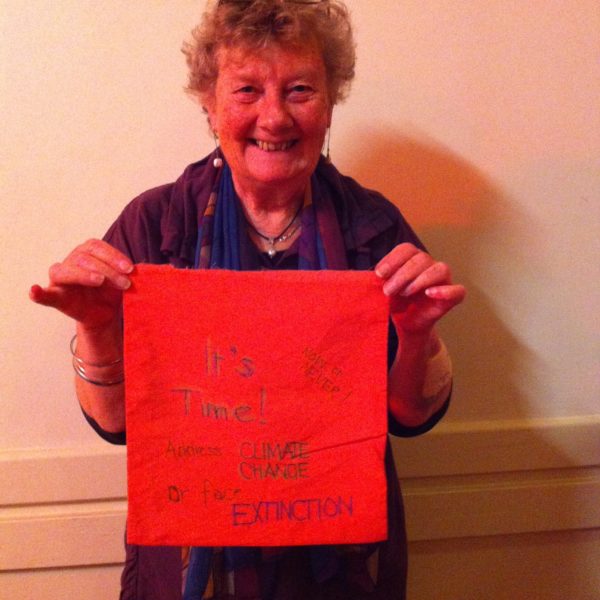 It's
Time!
NOW or
NEVER!
Address CLIMATE
CHANGE
Or face
EXTINCTION